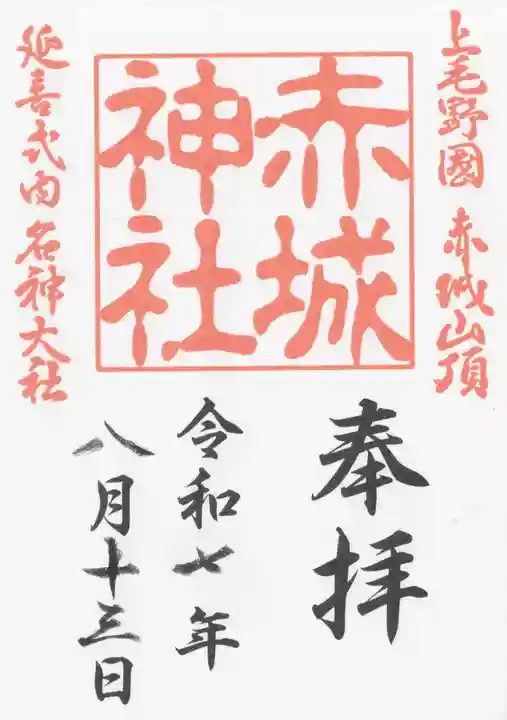 上毛野國 赤城山頂
赤城
神社
延喜式内名神大社
奉拝
令和七年
八月十三日